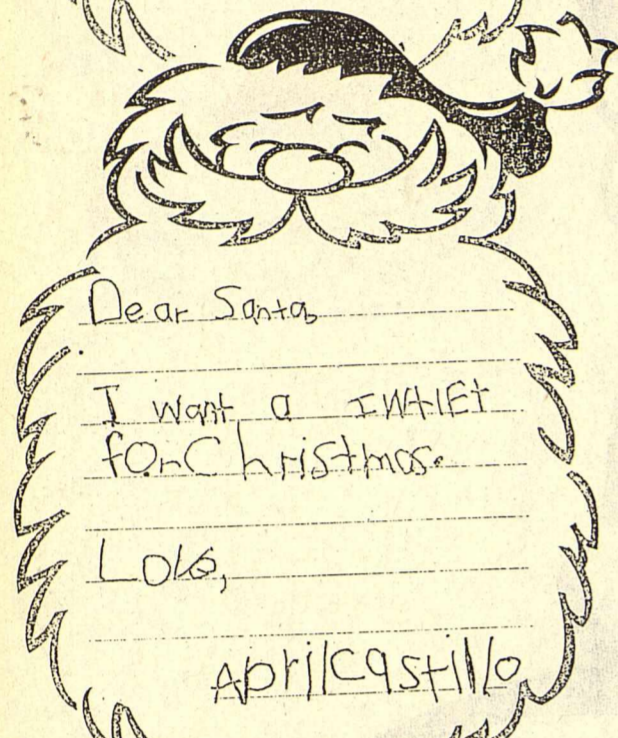 Dear Santa,
I want a INAlEt
forChristmas.
Love,
AprilCastillo